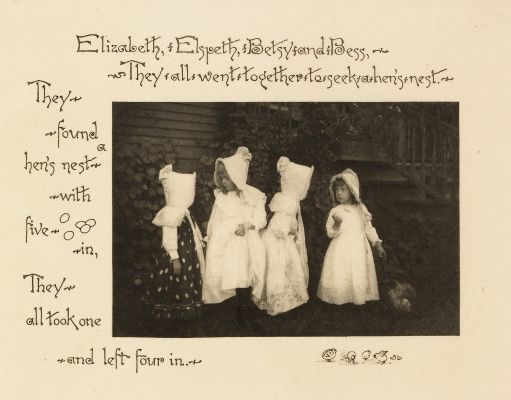 Elizabeth, Elspeth, Betsy and Bess,
They all went together to seek a hen's nest.
They
found
a
hen's nest
with
five
in,
They
all took one
and left four in.